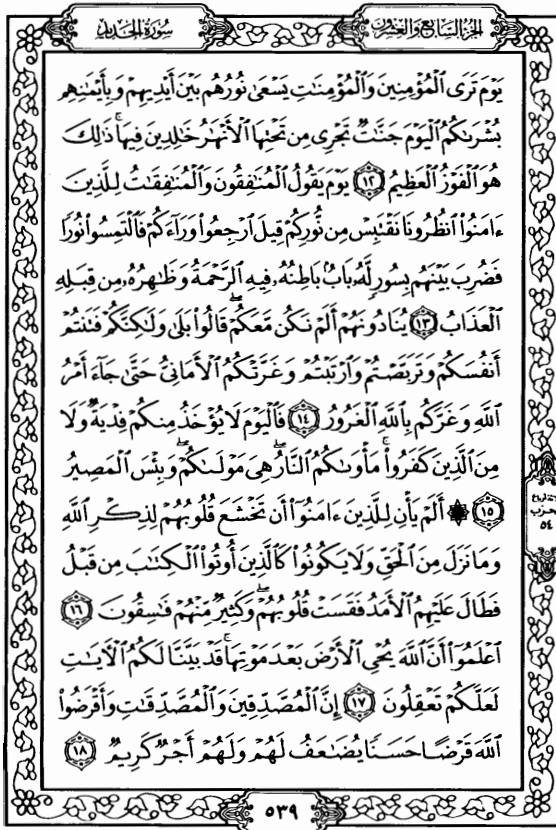 الجزء السابع والعشرون
سورة الحديد
يَوْمَ تَرَى ٱلْمُؤْمِنِينَ وَٱلْمُؤْمِنَٰتِ يَسْعَىٰ نُورُهُم بَيْنَ أَيْدِيهِمْ وَبِأَيْمَٰنِهِم
بُشْرَىٰكُمُ ٱلْيَوْمَ جَنَّٰتٌ تَجْرِى مِن تَحْتِهَا ٱلْأَنْهَٰرُ خَٰلِدِينَ فِيهَا ۚ ذَٰلِكَ
هُوَ ٱلْفَوْزُ ٱلْعَظِيمُ ١٢ يَوْمَ يَقُولُ ٱلْمُنَٰفِقُونَ وَٱلْمُنَٰفِقَٰتُ لِلَّذِينَ
ءَامَنُوا۟ ٱنظُرُونَا نَقْتَبِسْ مِن نُّورِكُمْ قِيلَ ٱرْجِعُوا۟ وَرَآءَكُمْ فَٱلْتَمِسُوا۟ نُورًا
فَضُرِبَ بَيْنَهُم بِسُورٍ لَّهُۥ بَابٌۢ بَاطِنُهُۥ فِيهِ ٱلرَّحْمَةُ وَظَٰهِرُهُۥ مِن قِبَلِهِ
ٱلْعَذَابُ ١٣ يُنَادُونَهُمْ أَلَمْ نَكُن مَّعَكُمْ ۖ قَالُوا۟ بَلَىٰ وَلَٰكِنَّكُمْ فَتَنتُمْ
أَنفُسَكُمْ وَتَرَبَّصْتُمْ وَٱرْتَبْتُمْ وَغَرَّتْكُمُ ٱلْأَمَانِىُّ حَتَّىٰ جَآءَ أَمْرُ
ٱللَّهِ وَغَرَّكُم بِٱللَّهِ ٱلْغَرُورُ ١٤ فَٱلْيَوْمَ لَا يُؤْخَذُ مِنكُمْ فِدْيَةٌ وَلَا
مِنَ ٱلَّذِينَ كَفَرُوا۟ ۚ مَأْوَىٰكُمُ ٱلنَّارُ ۖ هِىَ مَوْلَىٰكُمْ ۖ وَبِئْسَ ٱلْمَصِيرُ
١٥ ۞ أَلَمْ يَأْنِ لِلَّذِينَ ءَامَنُوٓا۟ أَن تَخْشَعَ قُلُوبُهُمْ لِذِكْرِ ٱللَّهِ
وَمَا نَزَلَ مِنَ ٱلْحَقِّ وَلَا يَكُونُوا۟ كَٱلَّذِينَ أُوتُوا۟ ٱلْكِتَٰبَ مِن قَبْلُ
فَطَالَ عَلَيْهِمُ ٱلْأَمَدُ فَقَسَتْ قُلُوبُهُمْ ۖ وَكَثِيرٌ مِّنْهُمْ فَٰسِقُونَ ١٦
ٱعْلَمُوٓا۟ أَنَّ ٱللَّهَ يُحْىِ ٱلْأَرْضَ بَعْدَ مَوْتِهَا ۚ قَدْ بَيَّنَّا لَكُمُ ٱلْءَايَٰتِ
لَعَلَّكُمْ تَعْقِلُونَ ١٧ إِنَّ ٱلْمُصَّدِّقِينَ وَٱلْمُصَّدِّقَٰتِ وَأَقْرَضُوا۟
ٱللَّهَ قَرْضًا حَسَنًا يُضَٰعَفُ لَهُمْ وَلَهُمْ أَجْرٌ كَرِيمٌ ١٨
الحزب
٥٤
٥٣٩